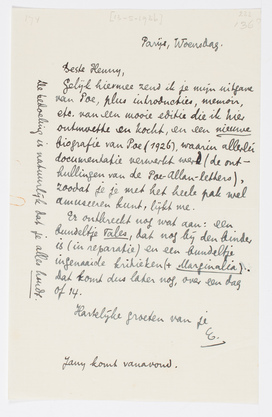 Parijs, Woensdag.
Beste Henny,
Gelijk hiermee zend ik je mijn uitgave
van Poe, plus introducties, memoir,
etc. van een mooie editie die ik hier
ontmoette en kocht, en een nieuwe
biografie van Poe (1926), waarin allerlei
documentatie verwerkt werd (de ont-
hullingen van de Poe-Allan-letters),
zoodat je je met het heele pak wel
amuseeren kunt, lijkt me.
Er ontbreekt nog wat aan: een
bundeltje Tales, dat nog bij den binder
is (in reparatie) en een bundeltje
ingenaaide kritieken (+ Marginalia).
dat komt dus later nog, over een dag
of 14.
Hartelijke groeten van je
E.
Jany komt vanavond.
De bedoeling is natuurlijk dat je alles houdt.